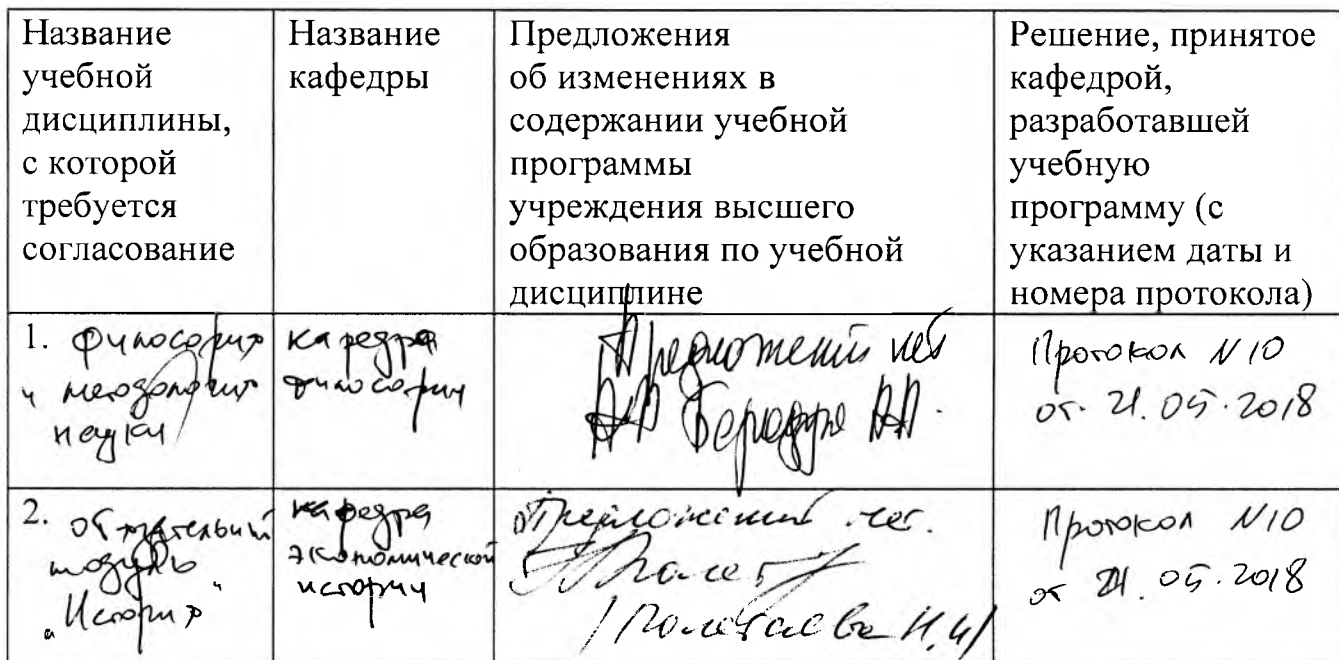 Название
учебной
дисциплины,
с которой
требуется
согласование
Название
кафедры
Предложения
об изменениях в
содержании учебной
программы
учреждения высшего
образования по учебной
дисциплине
Решение, принятое
кафедрой,
разработавшей
учебную
программу (с
указанием даты и
номера протокола)
1. Философия
и методология
науки
кафедра
философии
Предложений нет
Протокол N 10
от 21.05.2018
2.
модуль
"История"
кафедра
экономической
истории
Предложений нет.
/ Полетаева Н.И/
Протокол N10
от 21.05.2018